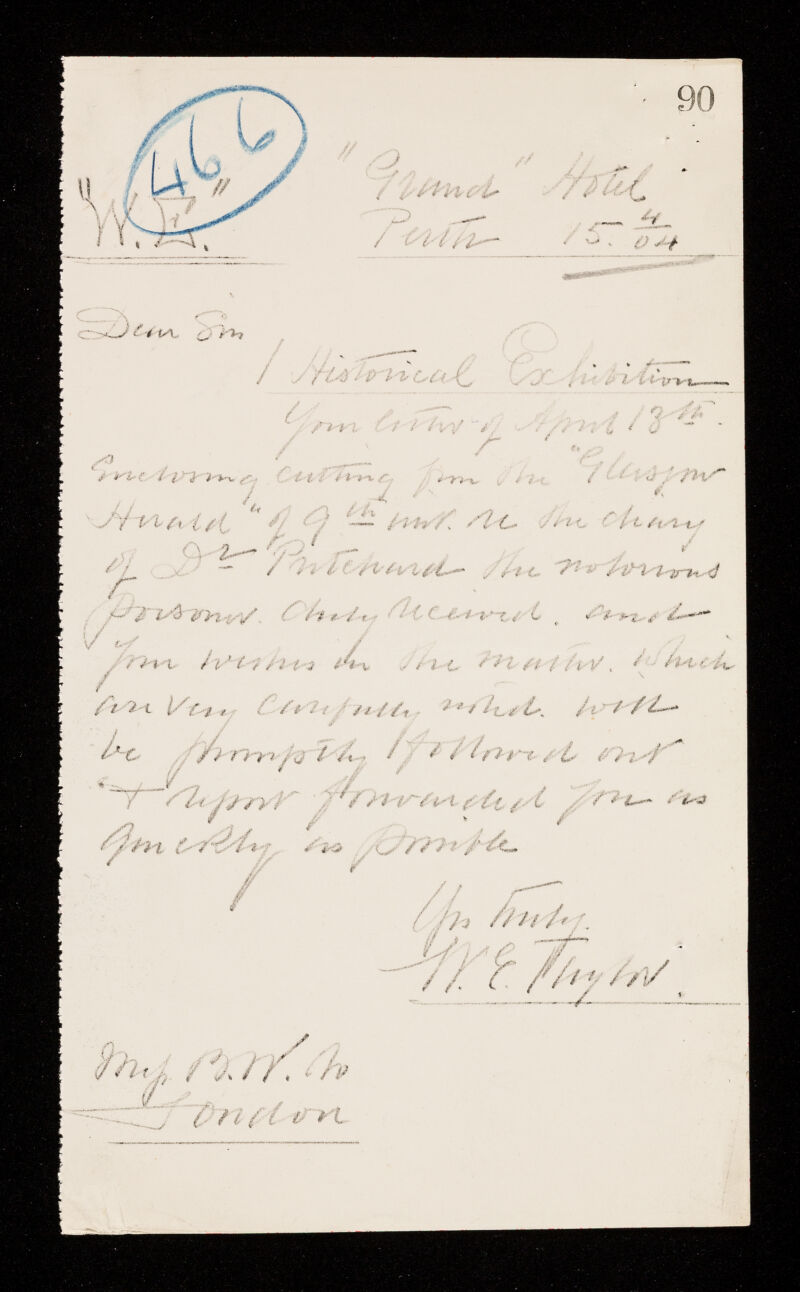 90
466
"W.E."
"Grand" Hotel
Perth 15. 4/04
Dear Sir
/ Historical Exhibition
Your letter of April 13th.
Enclosing cutting from the "Glasgow
Herald" of 9th inst. re the diary
of Dr Pritchard the notorious
poisoner. duly received. and
your wishes in the matter. which
are very carefully noted. will
be promptly followed out
& report forwarded you as
quickly as possible
Yrs truly.
W. E. Taylor.
B.W.
London